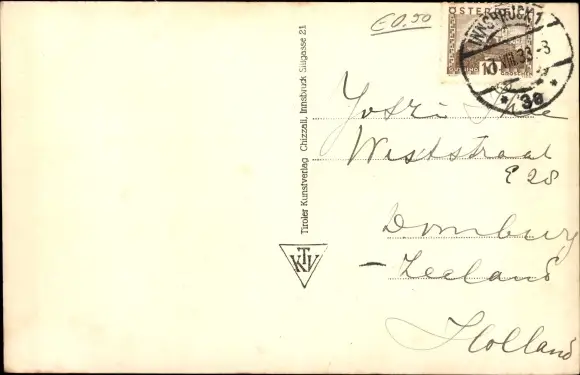 €0.50
ÖSTERREICH
INNSBRUCK 1
10 GROSCHEN
* 3a *
Tiroler Kunstverlag Chizzali, Innsbruck Sillgasse 21
TKV
Weststraat
E 28
Domburg
- Zeeland
Holland